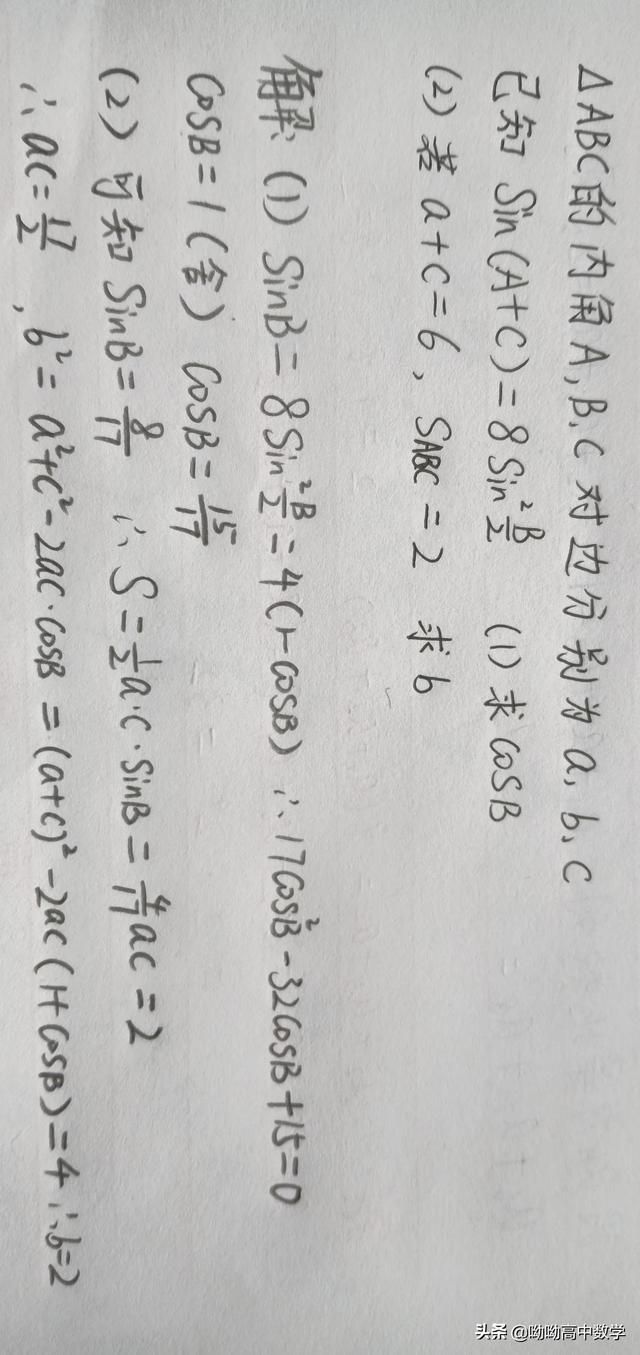 △ABC的内角A,B,C对边分别为a,b,c
已知 Sin(A+C)=8Sin²B/2 (1)求cosB
(2)若a+c=6,SABC=2 求b
解:(1)SinB=8Sin²B/2=4(1-cosB) ∴17cos²B-32cosB+15=0
cosB=1(舍) cosB=15/17
(2)可知SinB=8/17 ∴S=1/2a·c·sinB=4/17ac=2
∴ac=17/2,b²=a²+c²-2ac·cosB=(a+c)²-2ac(1+cosB)=4∴b=2
头条@呦呦高中数学